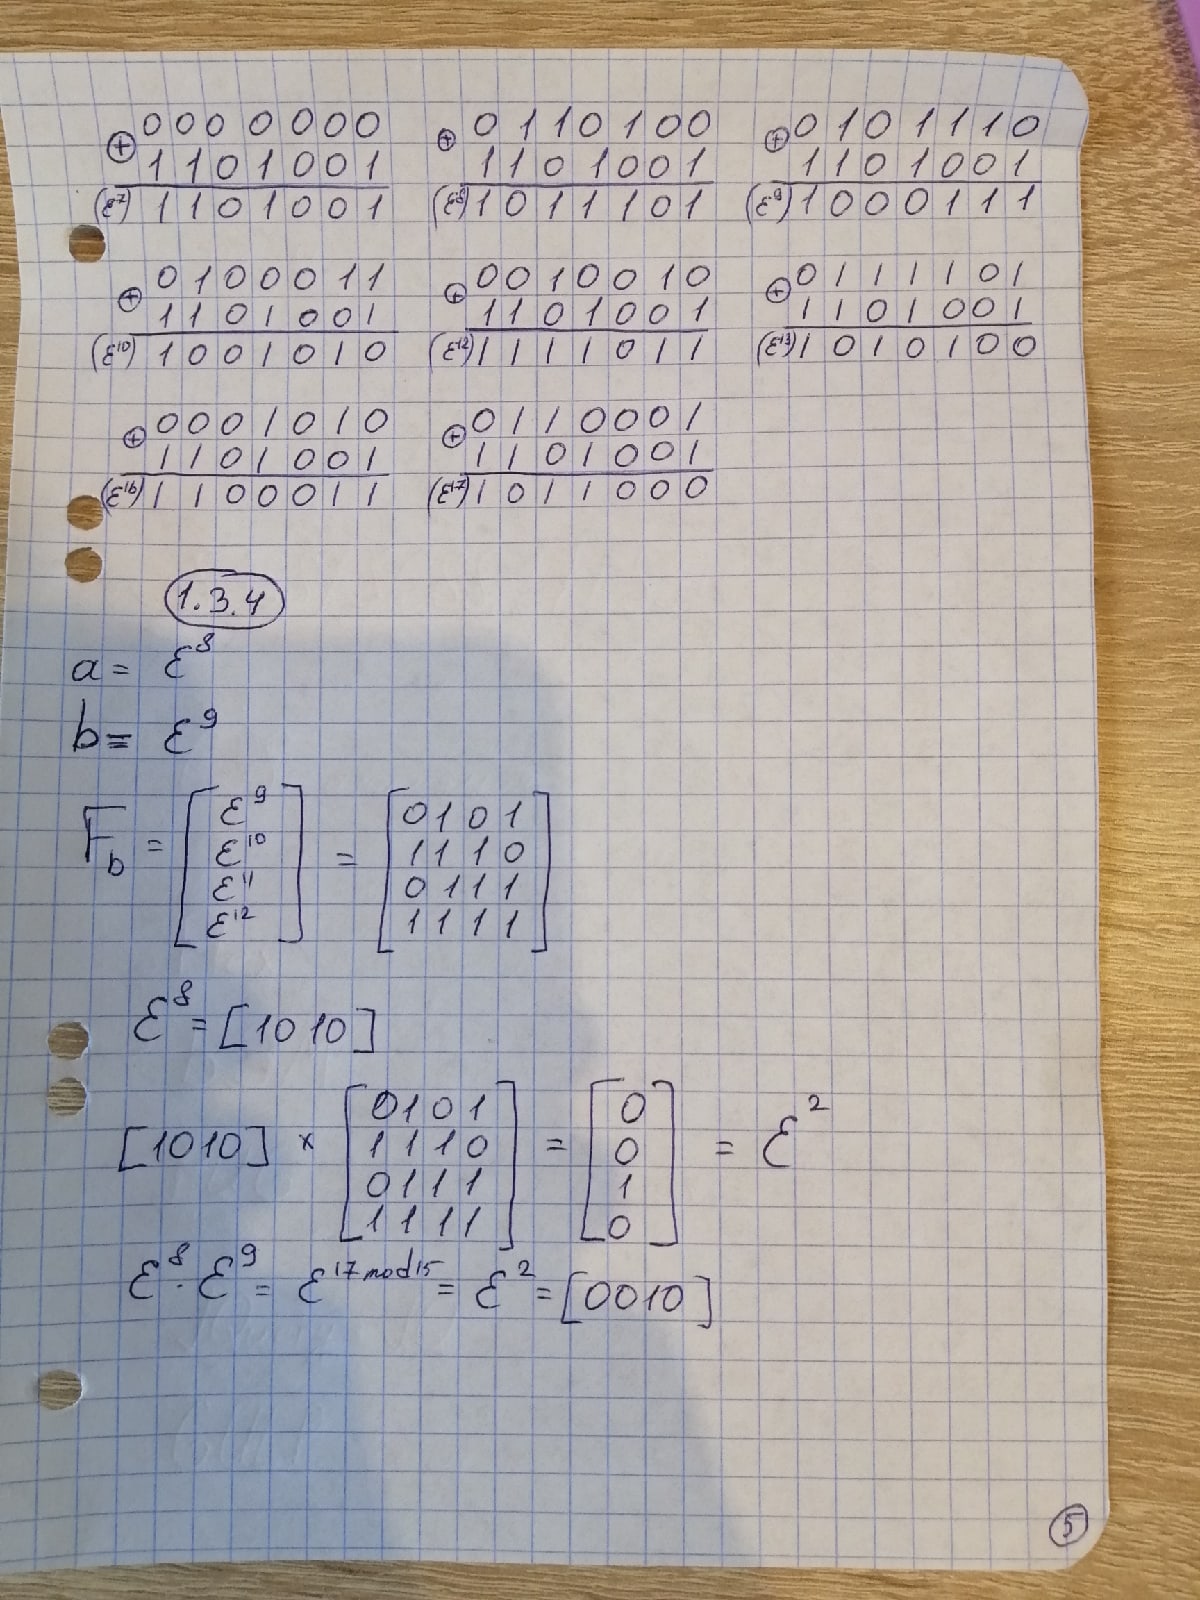 0000000 0110100 0101110
⊕ ⊕ ⊕
1101001 1101001 1101001
(ε⁷) 1101001 (ε⁸) 1011101 (ε⁹) 1000111
0100011 0010010 0111101
⊕ ⊕ ⊕
1101001 1101001 1101001
(ε¹⁰) 1001010 (ε¹²) 1111011 (ε¹³) 1010100
0001010 0110001
⊕ ⊕
1101001 1101001
(ε¹⁶) 1100011 (ε¹⁷) 1011000
1.3.4
a = ε⁸
b = ε⁹
F_b = [ε⁹ ε¹⁰ ε¹¹ ε¹²] = [0101 1110 0111 1111]
ε⁸ = [1010]
[1010] × [0101 1110 0111 1111] = [0 0 1 0] = ε²
ε⁸ · ε⁹ = ε^17 mod 15 = ε² = [0010]
5